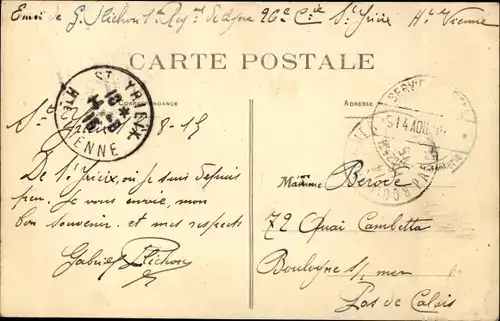 Envoi de G. Plichon 1er Régnt de ligne 26e Cie St Yrieix Hte Vienne
CARTE POSTALE
CORRESPONDANCE
ADRESSE
ST YRIEIX
Hte VIENNE
St Yrieix 8-15
De St Yrieix, où je suis depuis
peu. Je vous envoie, mon
bon souvenir. et mes respects
Gabriel Plichon
Madame Bérode
72 Quai Gambetta
Boulogne s/ mer
Pas de Calais